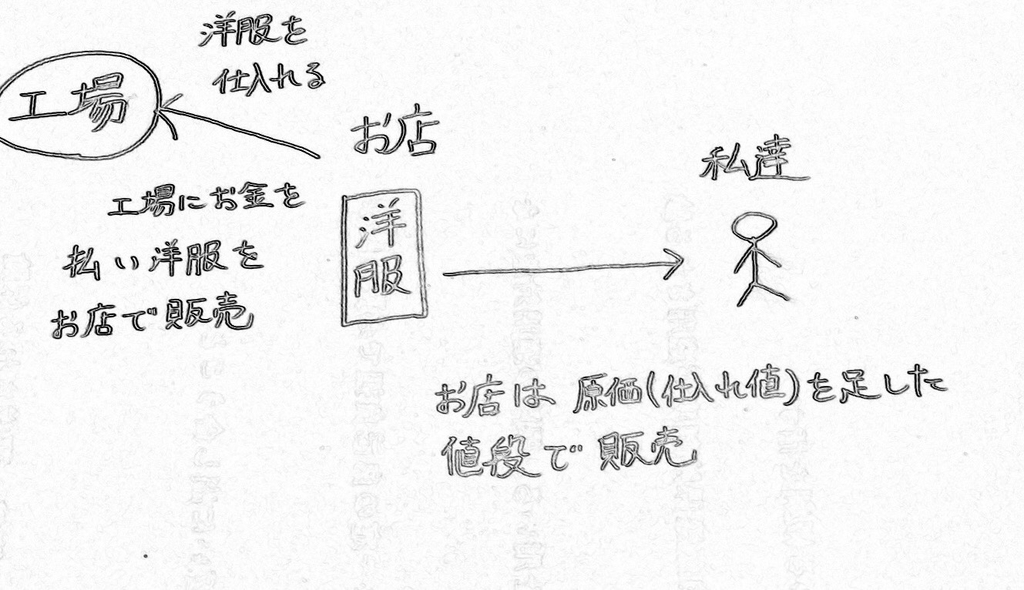 洋服を
仕入れる
工場
お店
私達
工場にお金を
払い洋服を
お店で販売
洋
服
お店は原価(仕入れ値)を足した
値段で販売